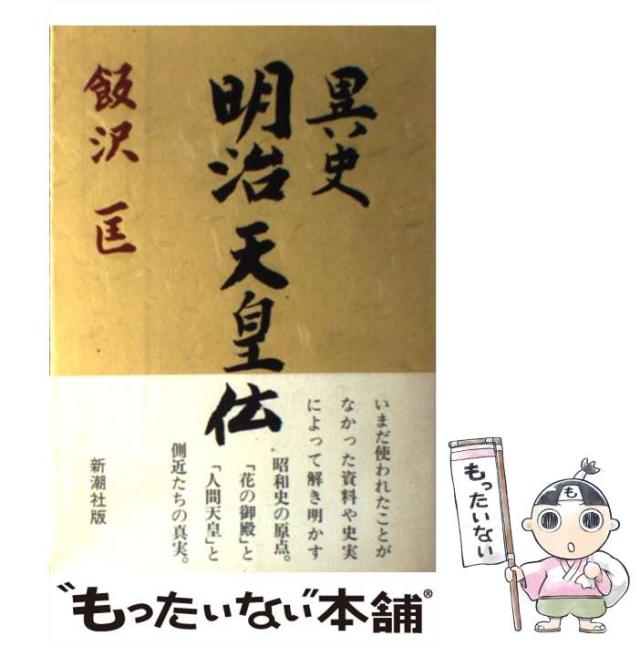 異史
明治天皇伝
飯沢 匡
いまだ使われたことが
なかった資料や史実
によって解き明かす
昭和史の原点。
「花の御殿」と
「人間天皇」と
側近たちの真実。
新潮社版
"もったいない"本舗®
もったいない
も